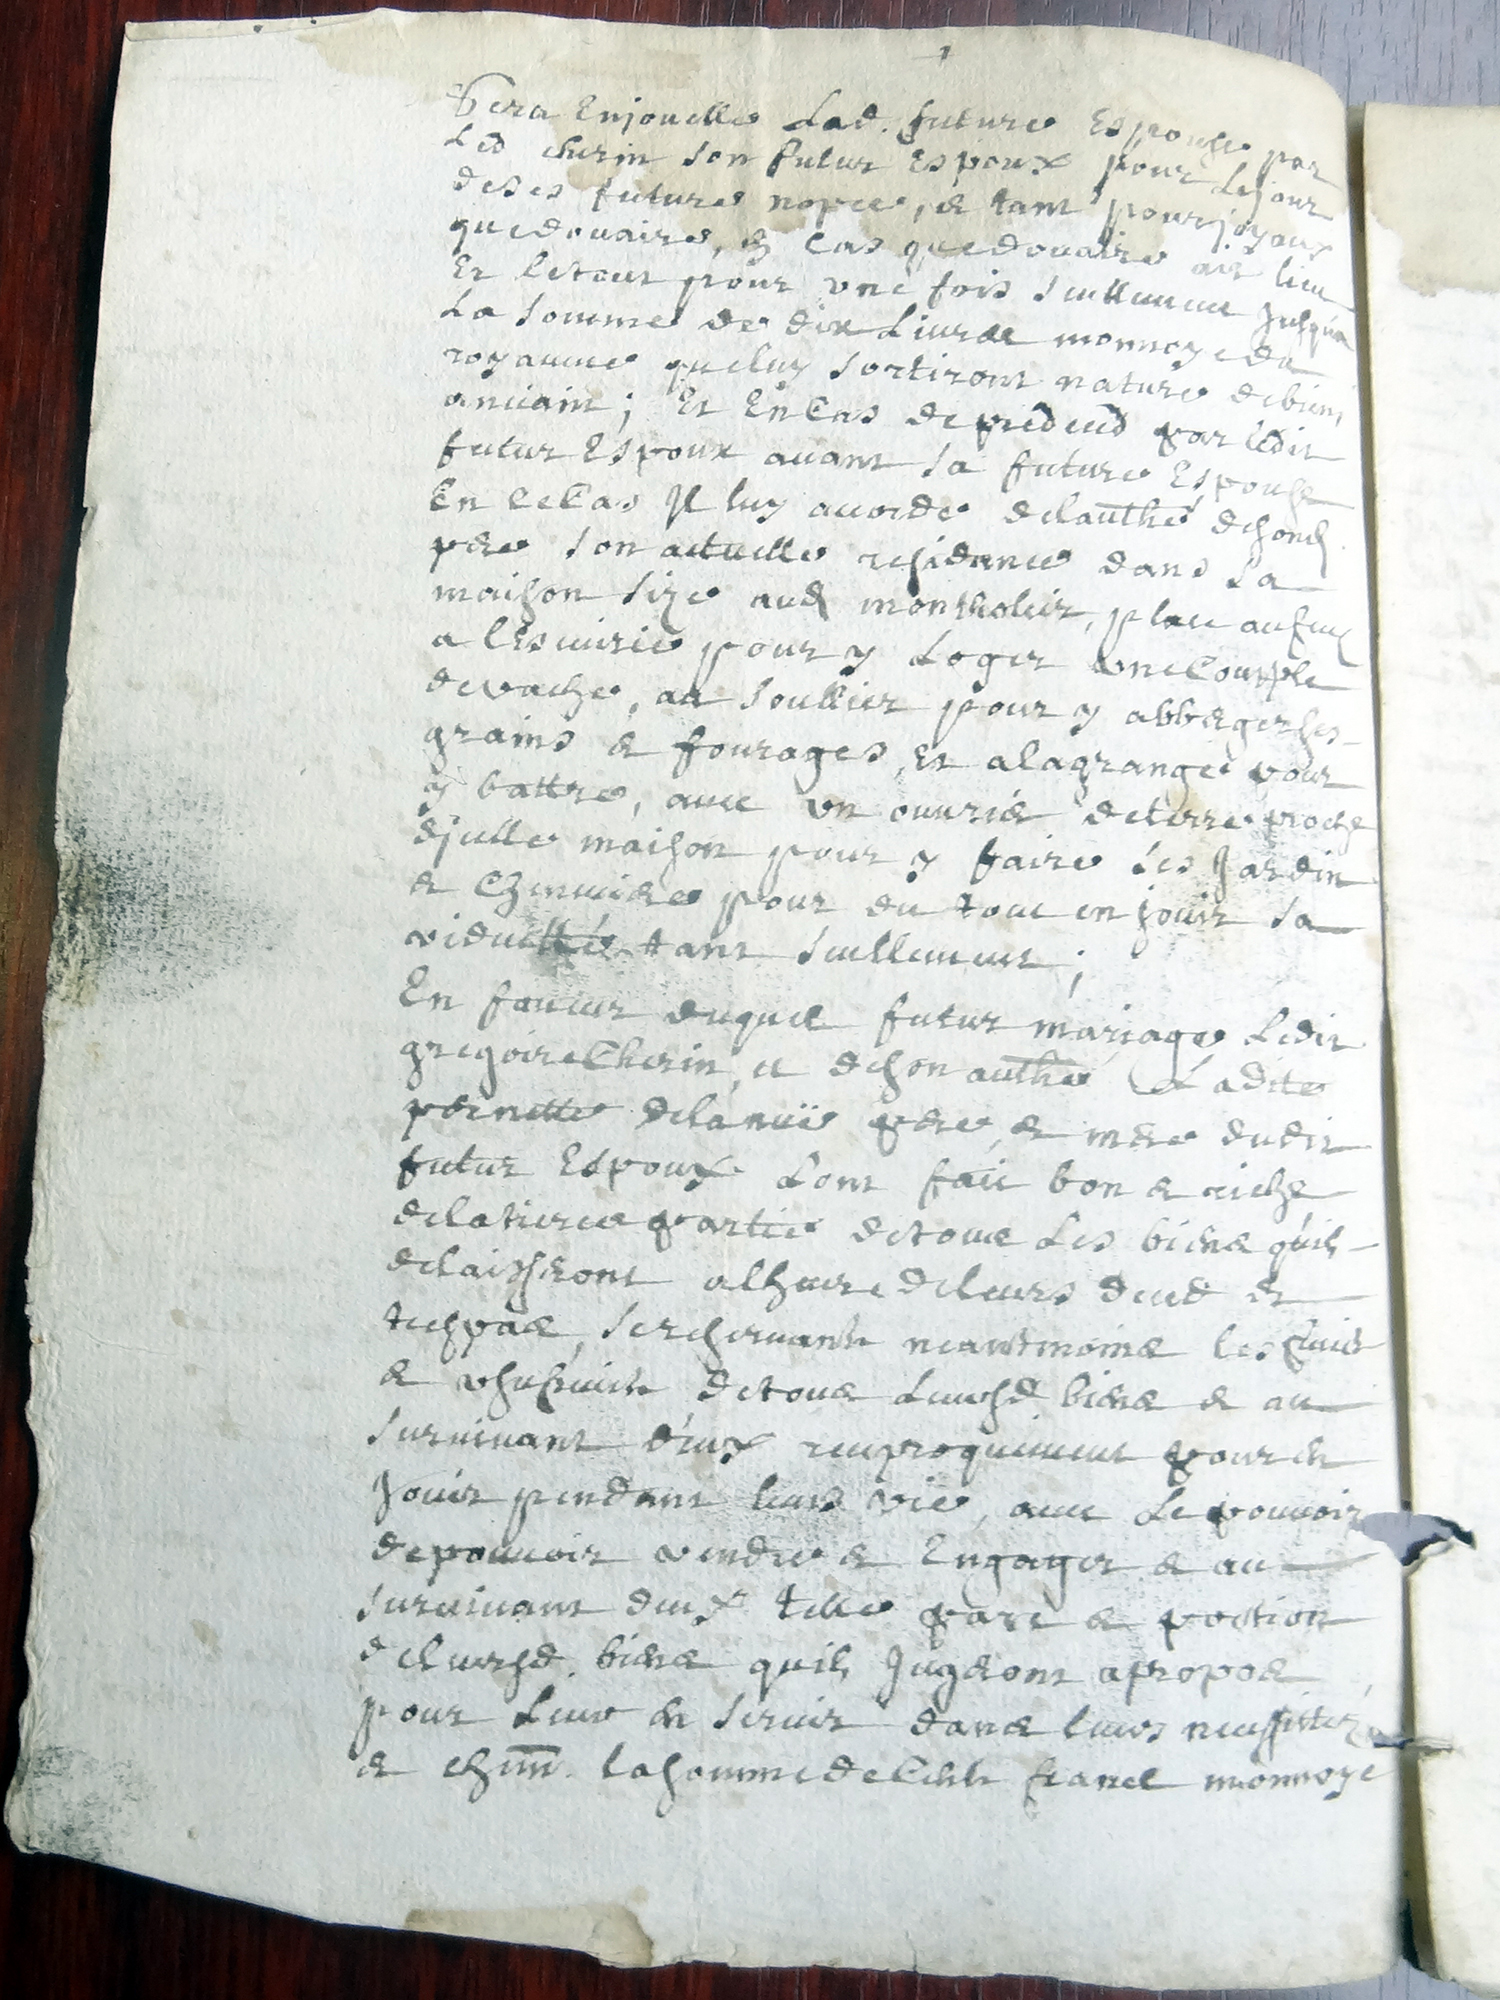 Sera Enjouellee Lad. future Espouse par
Led cherin son futur Espoux pour Le jour
de ses futures nopces, & tant pour joyaux
que douaire, en cas que douaire ait lieu
Et le tout pour une fois seullement Jusqua
La somme de dix Livres monnoye du
royaume que luy sortiront nature de bien
ancient ; Et En Cas de predeced par ledit
futur Espoux avant sa future Espouse
En ce Cas Jl luy accorde de lauthé de sond.
pere son actuelle residance dans sa
maison size aud montholier, place au feug
a lescuirie pour y Loger une Coupple
de vache, au soullier pour y abberger ses
grains & fourages, Et a la grange pour
y battre, avec un ouvrier de terre proche
djcelle maison pour y faire ses Jardin
& Cheneviere pour du tout en jouir sa
viduitté tant seullement ;
En faveur duquel futur mariage Ledit
gregoire Cherin, et de son authé Ladite
pernette delanuë pere, & mere dudit
futur Espoux Lont fait bon & riche
de la tierce partie de tous Les biens quils
delaisseront a lheure de leurs deced &
trespas, se reservants neantmoins les fruits
& usufruits de tous Leursd biens & au
survivant d'eux reciproquement pour en
Jouir pendant leurs vie, avec Le pouvoir
de pouvoir vendre & Engager & au
survivant deux telle part & portion
de leursd. biens quils Jugeront a propos
pour Leur en servir dans leurs necessittez
& chun. la somme de Cent francs monnoye